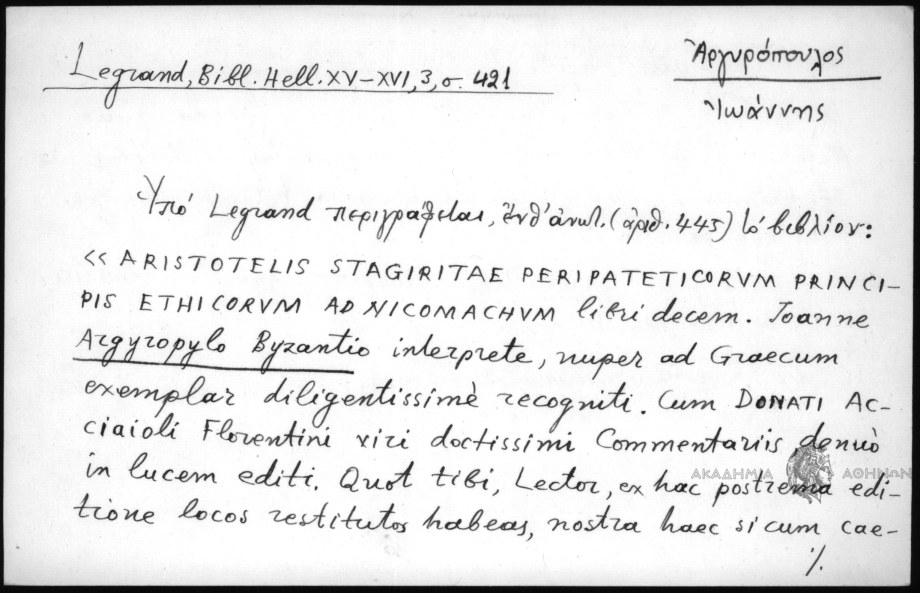 Legrand, Bibl. Hell. XV-XVI, 3, σ. 421
Ἀργυρόπουλος
Ἰωάννης
Ὑπό Legrand περιγράφεται, ἐνθ' ἀνωτ. (ἀριθ. 445) τό βιβλίον:
«ARISTOTELIS STAGIRITAE PERIPATETICORVM PRINCI-
PIS ETHICORVM AD NICOMACHVM libri decem. Ioanne
Argyropylo Byzantio interprete, nuper ad Graecum
exemplar diligentissimè recogniti. Cum DONATI AC-
ciaioli Florentini viri doctissimi Commentariis, denuò
in lucem editi. Quot tibi, Lector, ex hac postrema edi-
tione locos restitutos habeas, nostra haec si cum cae-
./.
ΑΚΑΔΗΜΙΑ ΑΘΗΝΩΝ